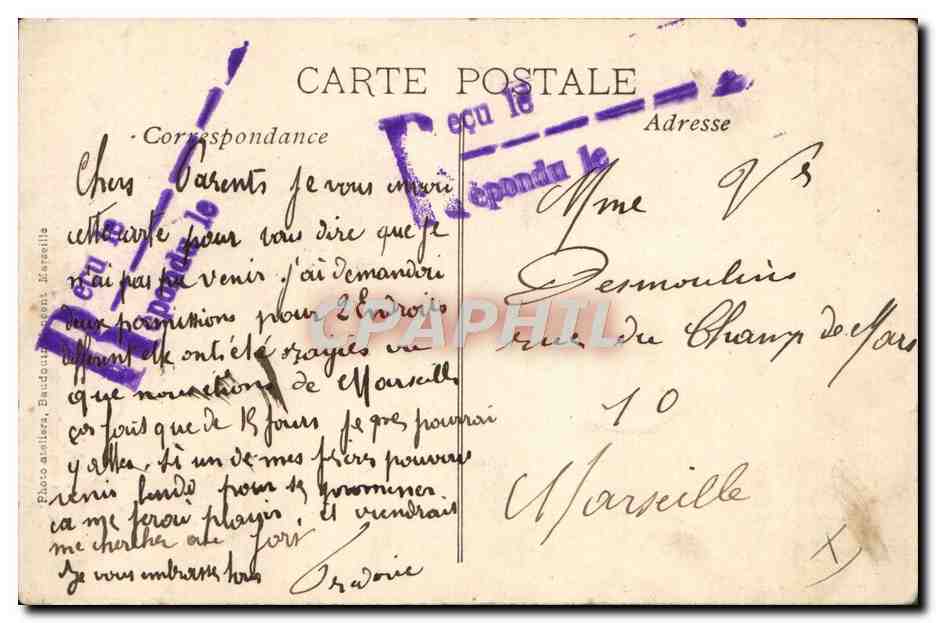 CARTE POSTALE
Correspondance
Adresse
Reçu le
Répondu le
Reçu le
Répondu le
Chers Parents je vous
cette carte pour vous dire que je
n'ai pas pu venir j'ai demandai
deux permissions pour 2 Endroits
different elle ont été rayées vu
que nous etions de Marseille
ça fait que de 15 jours je pourrai
y aller. si un de mes frères pouvais
venir lundi pour se promener
ca me ferai plaisir il viendrait
me chercher au fort
Je vous embrasse tous
Mme Vve
Desmoulins
rue du Champ de Mars
10
Marseille
Photo ateliers, Baudouin Vincent Marseille
CPAPHIL